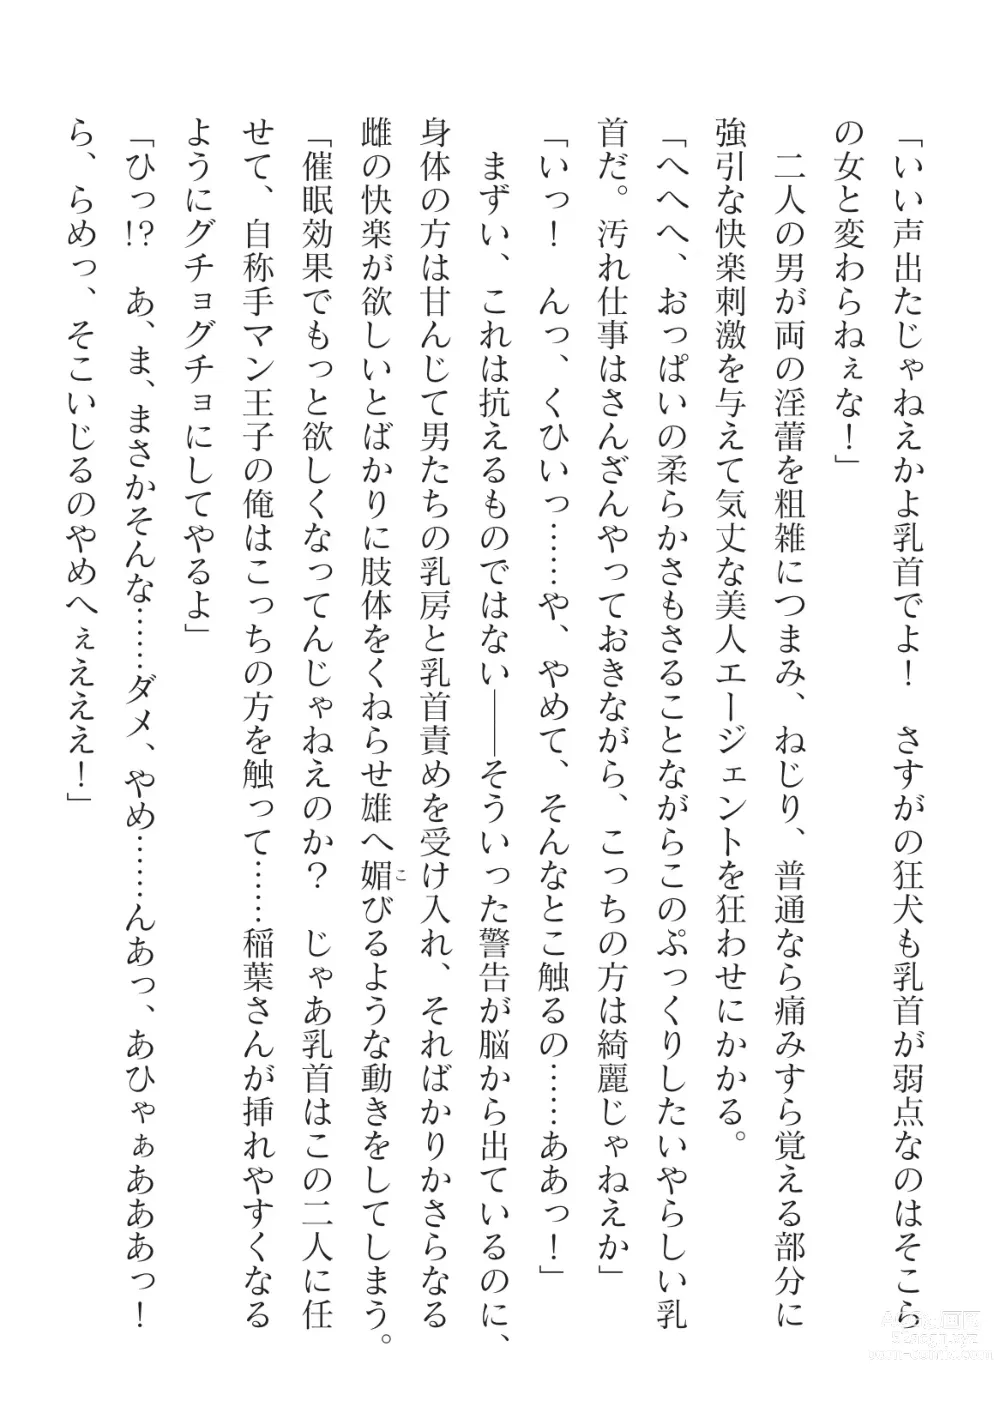 「いい声出たじゃねえかよ乳首でよ！　さすがの狂犬も乳首が弱点なのはそこら
の女と変わらねぇな！」
　二人の男が両の淫蕾を粗雑につまみ、ねじり、普通なら痛みすら覚える部分に
強引な快楽刺激を与えて気丈な美人エージェントを狂わせにかかる。
「へへへ、おっぱいの柔らかさもさることながらこのぷっくりしたいやらしい乳
首だ。汚れ仕事はさんざんやっておきながら、こっちの方は綺麗じゃねえか」
「いっ！　んっ、くひいっ……や、やめて、そんなとこ触るの……ああっ！」
　まずい、これは抗えるものではない――そういった警告が脳から出ているのに、
身体の方は甘んじて男たちの乳房と乳首責めを受け入れ、そればかりかさらなる
雌の快楽が欲しいとばかりに肢体をくねらせ雄へ媚びるような動きをしてしまう。
こ
「催眠効果でもっと欲しくなってんじゃねえのか？　じゃあ乳首はこの二人に任
せて、自称手マン王子の俺はこっちの方を触って……稲葉さんが挿れやすくなる
ようにグチョグチョにしてやるよ」
「ひっ!?　あ、ま、まさかそんな……ダメ、やめ……んあっ、あひゃぁあああっ！
ら、らめっ、そこいじるのやめへぇえええ！」